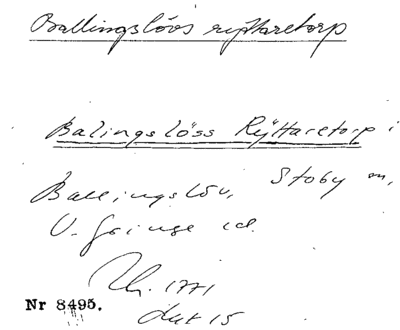 Ballingslövs ryttaretorp
Balingslöss Ryttaretorp i
Ballingslöv, Stoby sn,
V. Göinge hd.
1771
Nr 8495.
akt 15